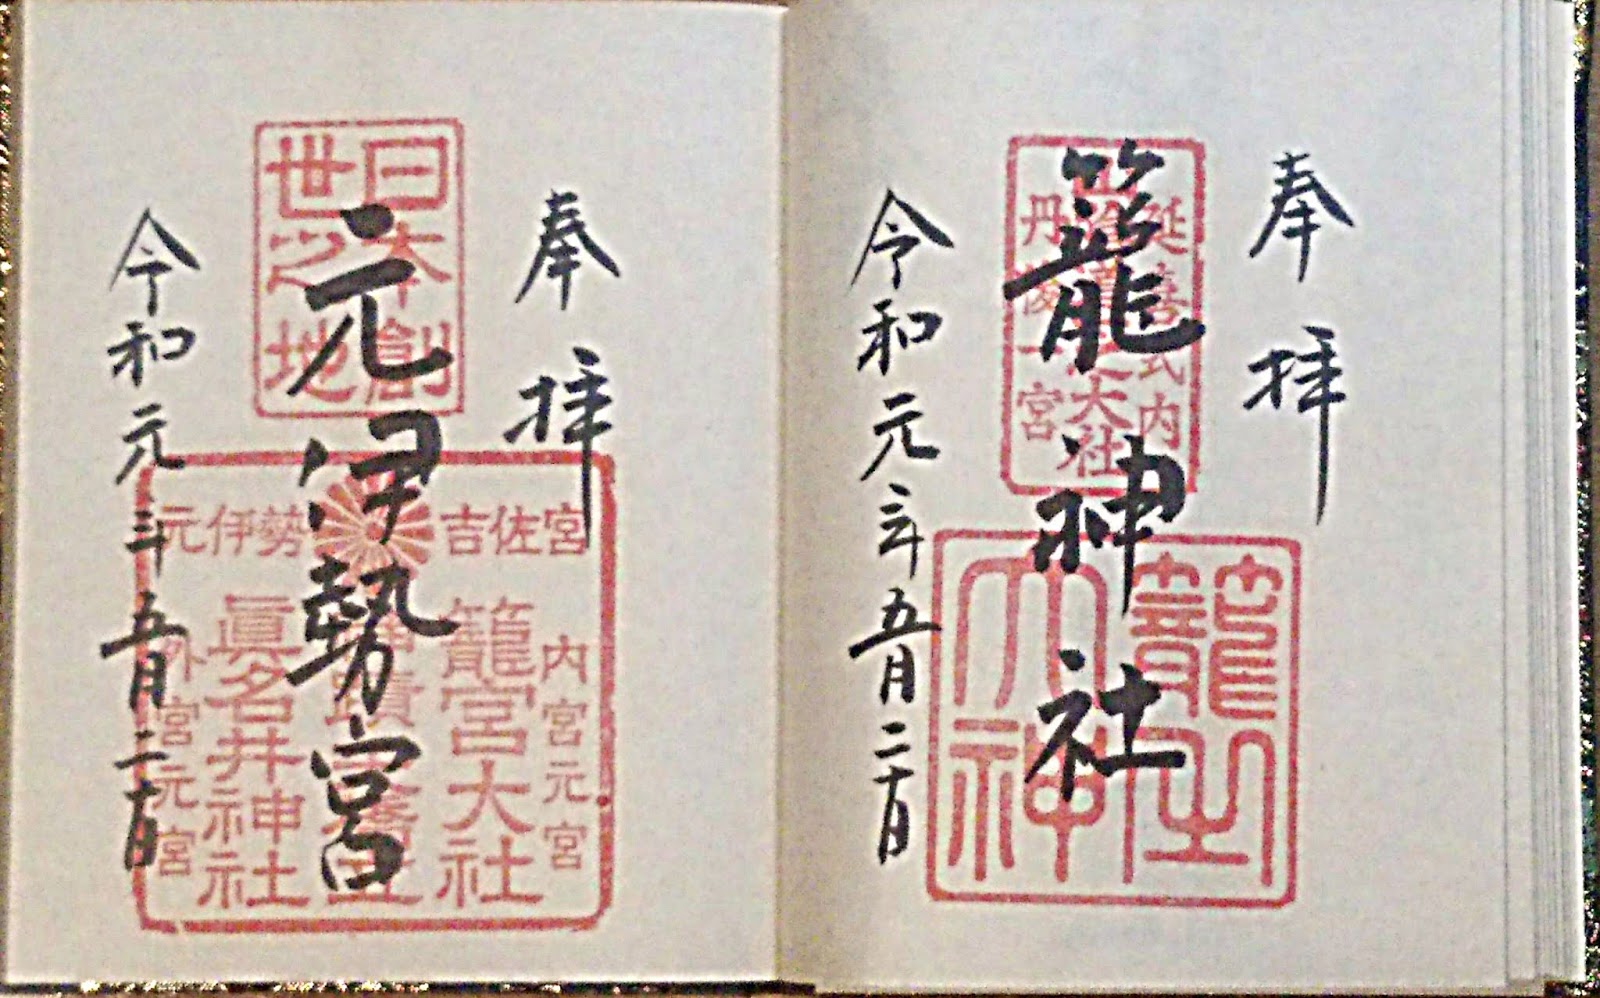 奉拝
籠神社
令和元年五月二十日
延喜式内
山陰道之大社
丹後一宮
籠之
大神
奉拝
元伊勢宮
令和元年五月二十日
日本創
世之地
元伊勢 吉佐宮
内宮元宮
籠宮大社
眞名井神社
外宮元宮